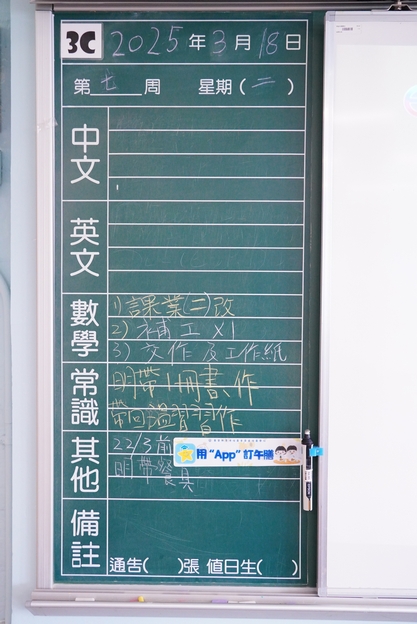 3C 2025年3月18日
第七周 星期(二)
中文
英文
數學
1)課業(二)改
2)補工X1
3)交作及工作紙
常識
明帶1冊書、作
帶回溫習習作
其他
22/3前
用“App”訂午膳
明帶餐具
備註
通告( )張 值日生( )